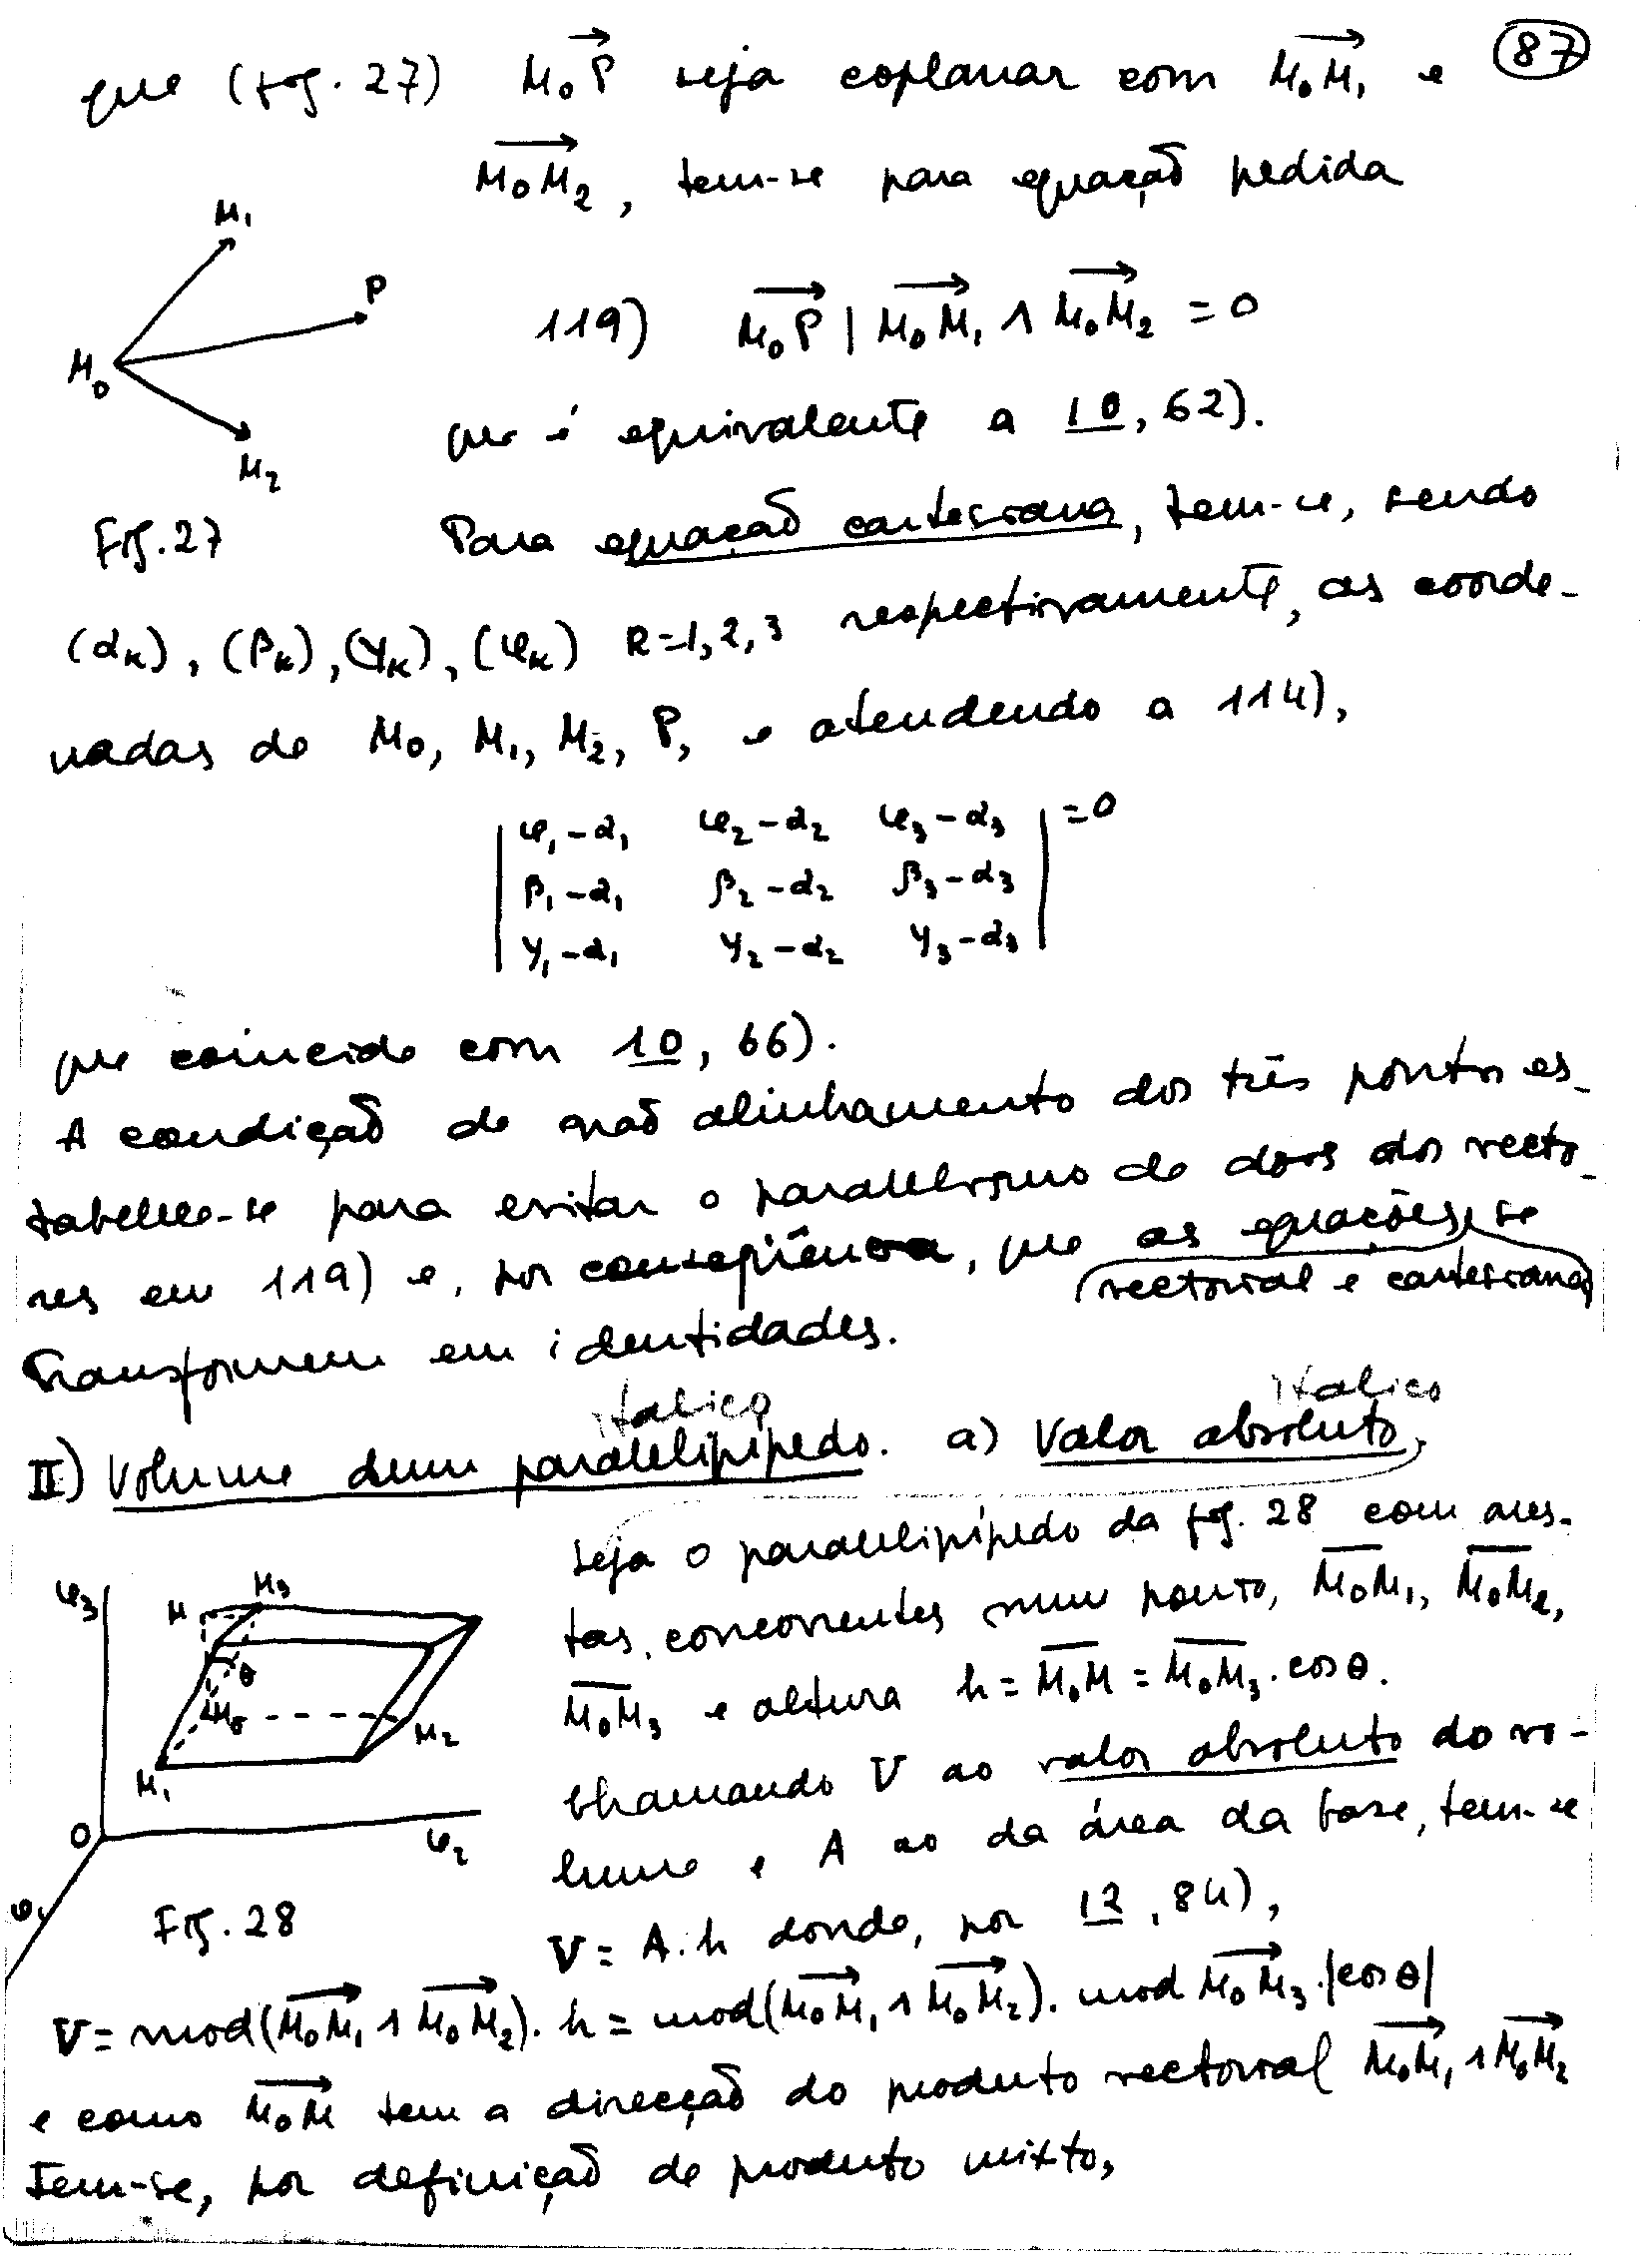 87
que (fig. 27) M₀P seja coplanar com M₀M₁ e
M₀M₂, tem-se para equação pedida
M₁
P
M₀
M₂
119) M₀P | M₀M₁ ∧ M₀M₂ = 0
que é equivalente a 10, 62).
Fig. 27
Para equação cartesiana, tem-se, sendo
(αₖ), (βₖ), (γₖ), (φₖ) k=1,2,3 respectivamente, as coorde-
nadas de M₀, M₁, M₂, P, e atendendo a 114),
| φ₁-α₁ φ₂-α₂ φ₃-α₃ | = 0
| β₁-α₁ β₂-α₂ β₃-α₃ |
| γ₁-α₁ γ₂-α₂ γ₃-α₃ |
que coincide com 10, 66).
A condição de não alinhamento dos três pontos es-
tabelece-se para evitar o paralelismo de dois dos vecto-
res em 119) e, por conseqüência, que as equações se
(vectorial e cartesiana)
transformem em identidades.
itálico
itálico
II) Volume dum paralelipípedo. a) Valor absoluto,
seja o paralelipípedo da fig. 28 com ares-
tas, concorrentes num ponto, M₀M₁, M₀M₂,
M₀M₃ e altura h = M₀M = M₀M₃ . cos θ.
Chamando V ao valor absoluto do vo-
lume e A ao da área da base, tem-se
V = A.h donde, por 12, 84),
φ₃
M
M₃
θ
M₀
M₂
M₁
O
φ₂
φ₁
Fig. 28
V = mod(M₀M₁ ∧ M₀M₂). h = mod(M₀M₁ ∧ M₀M₂). mod M₀M₃ . |cos θ|
e como M₀M tem a direcção do produto vectorial M₀M₁ ∧ M₀M₂
tem-se, por definição de produto mixto,